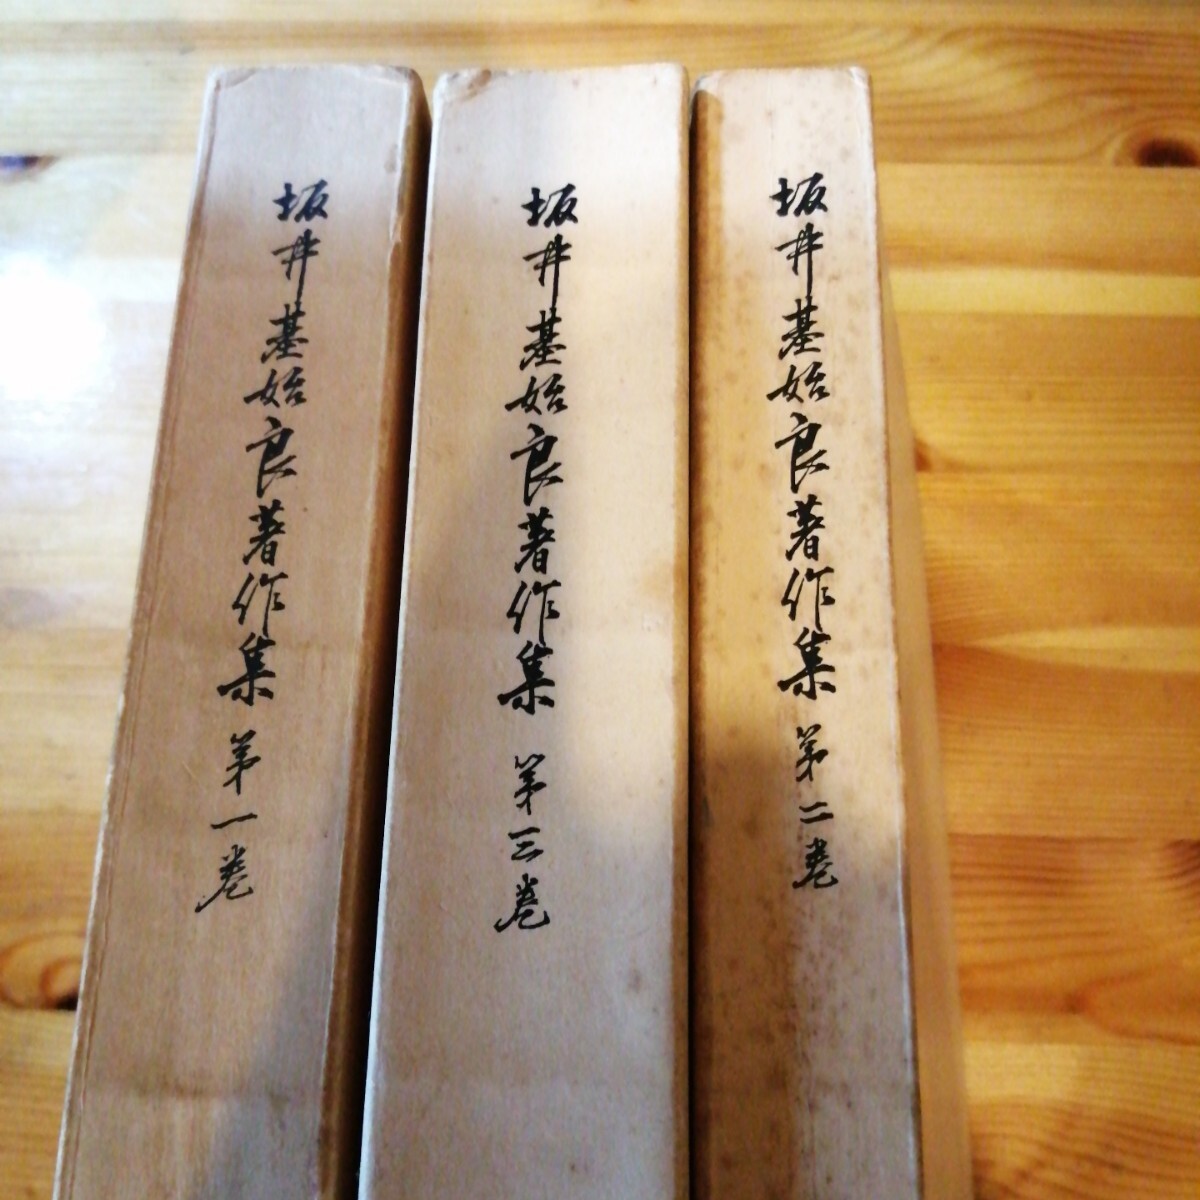 坂井基始良著作集 第一巻
坂井基始良著作集 第三巻
坂井基始良著作集 第二巻